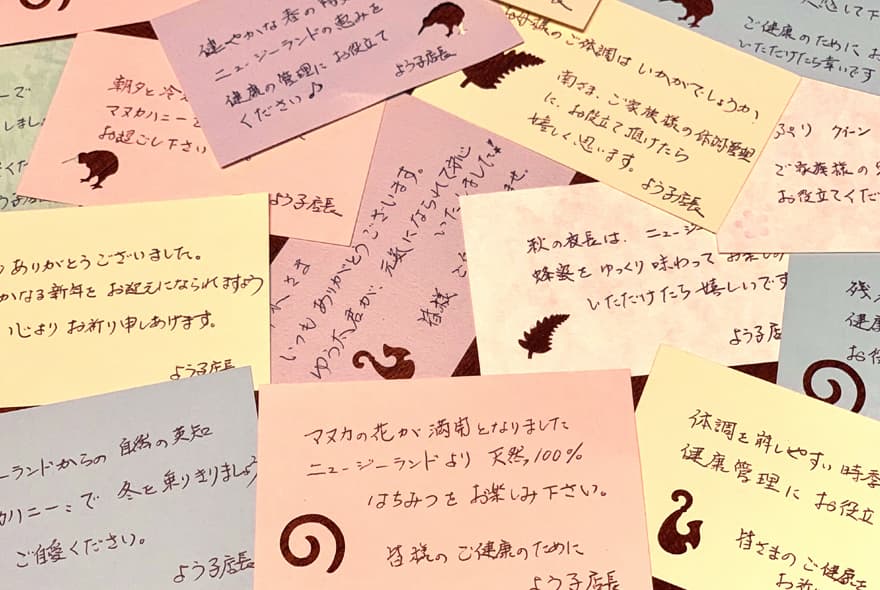 健やかな春の
ニュージーランドの恵みを
健康の管理に お役立て
ください♪
よう子店長
朝夕と冷え
マヌカハニーで
お過ごし下さい
よう子店長
お母様のご体調は いかがでしょうか。
南さま、ご家族様の体調管理
に、お役立て頂けたら
嬉しく思います。
よう子店長
ご健康のために お
いただけたら幸いです
クイーン
ご家族様の
お役立てくだ
いつも ありがとうございます。
ゆう太君が、元気になられて本心
いたしました!
皆様
秋の夜長は、ニュージー
蜂蜜を ゆっくり 味わって お楽しみ
いただけたら 嬉しいです
よう子店
ありがとうございました。
かなる新年を お迎えになられますよう
心より お祈り申しあげます。
よう子店長
ーランドからの 自然の英知
カハニーで 冬を乗りきりましょう
ご自愛ください。
よう子店長
マヌカの花が 満開となりました
ニュージーランドより 天然100%
はちみつを お楽しみ下さい。
皆様の ご健康のために
よう子店長
残
健康
お役
体調を崩しやすい時季
健康管理に お役立
皆さまのご健康を
お祈